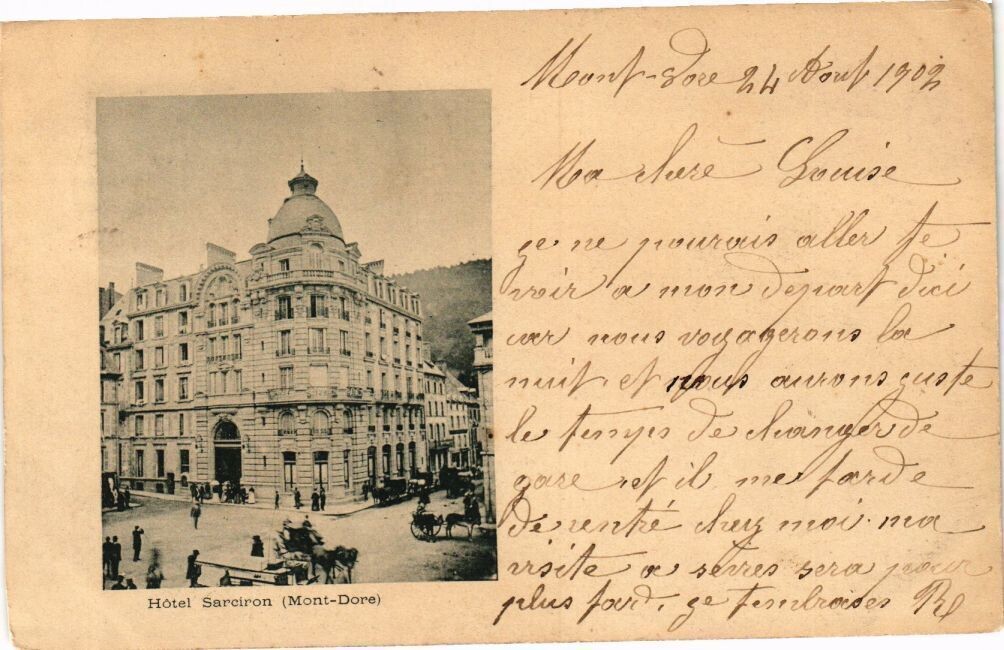 Mont-Dore 24 Aout 1902
Ma chere Louise
ge ne pourais aller te
voir a mon depart dici
car nous voyagerons la
nuit et nous aurons guste
le temps de changer de
gare et il me tarde
de rentré chez moi ma
visite a sèvres sera pour
plus tard. ge tembrasses
Hôtel Sarciron (Mont-Dore)